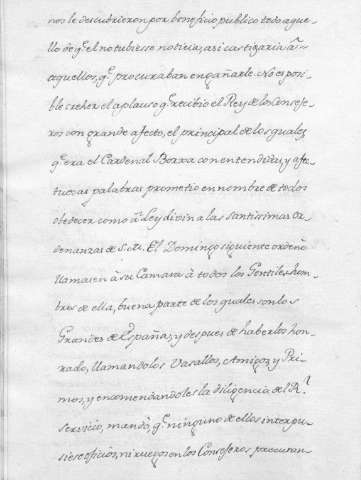 nos le descubrieron por beneficio publico todo aque-
llo de q.e el no tubiesse noticia, asi castigaria à
aquellos, q.e procuraban engañarle. No es posi-
ble creher el aplauso q.e recibio el Rey de los Conseje-
ros con grande afecto, el principal de los quales
q.e era el Cardenal Borxa con entendidas, y afec-
tuosas palabras prometio en nombre de todos
obedecer como à Ley divina las santissimas Or-
denanzas de S. M. El Domingo siguiente ordenò
llamasen à su Camara à todos los Gentiles hom-
bres de ella, buena parte de los quales son los
Grandes de España, y despues de haberlos hon-
rado, llamandolos Vasallos, Amigos, y Pri-
mos, y encomendandoles la diligencia del R.l
servicio, mandò, q.e ninguno de ellos interpu-
siese oficios, ni ruegos con los Consejeros procuran-